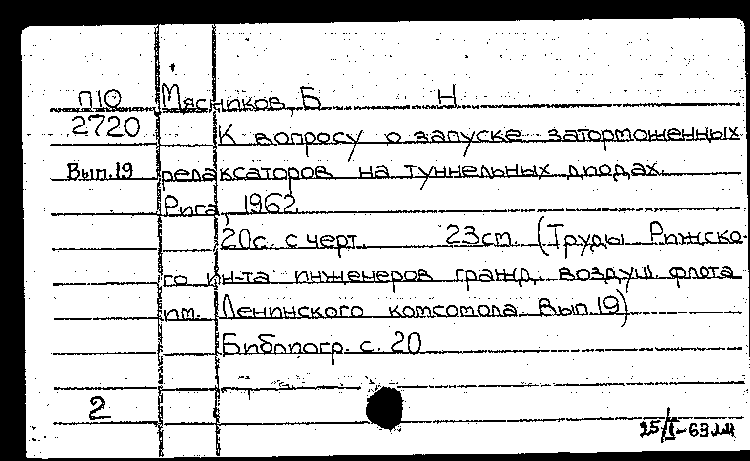 П10 Мясников, Б Н
2720 К вопросу о запуске заторможенных
Вып.19 релаксаторов на туннельных диодах.
Рига, 1962
20с. с черт. 23см. (Труды Рижско-
го ин-та инженеров гражд. воздуш флота
им. Ленинского комсомола. Вып.19)
Библиогр. с. 20
2
25/I-63